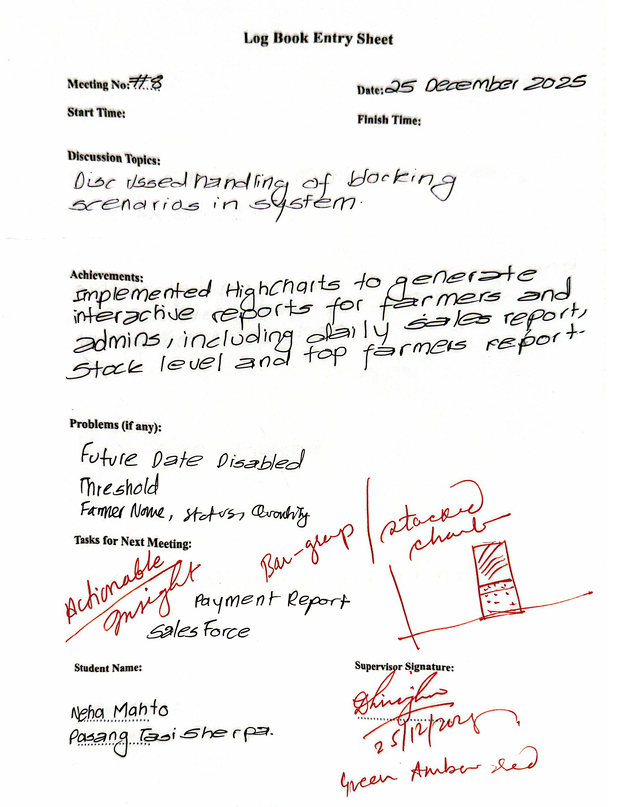 Log Book Entry Sheet
Meeting No: #8
Date: 25 December 2025
Start Time:
Finish Time:
Discussion Topics:
Discussed handling of blocking
scenarios in system.
Achievements:
Implemented HighCharts to generate
interactive reports for farmers and
admins, including daily sales report,
stock level and top farmers report.
Problems (if any):
Future Date Disabled
Threshold
Farmer Name, Status, Quantity
Tasks for Next Meeting:
Bar-group
stacked
chart
Actionable
Insight
Payment Report
Sales Force
Student Name:
Supervisor Signature:
Neha Mahto
Pasang Tasi Sherpa.
25/12/2025
Green Amber Red